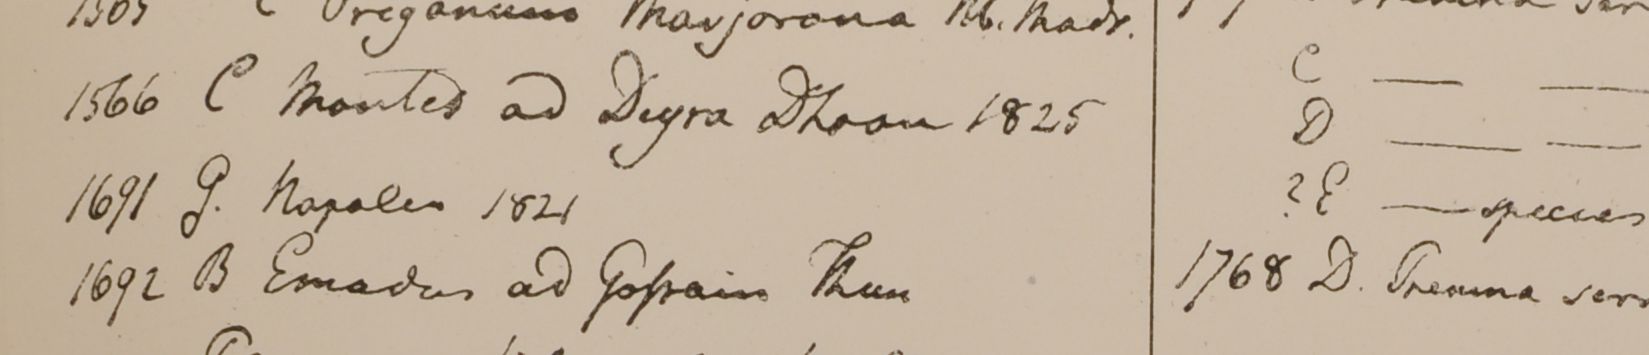 C Origanum Marjorana hb. Madr.
1566 C Montes ad Deyra Dhoon 1825
1691 G. Napalen 1821
1692 B Emodus ad Gossain Than
C — —
D — —
? E — species
1768 D. Premna serr